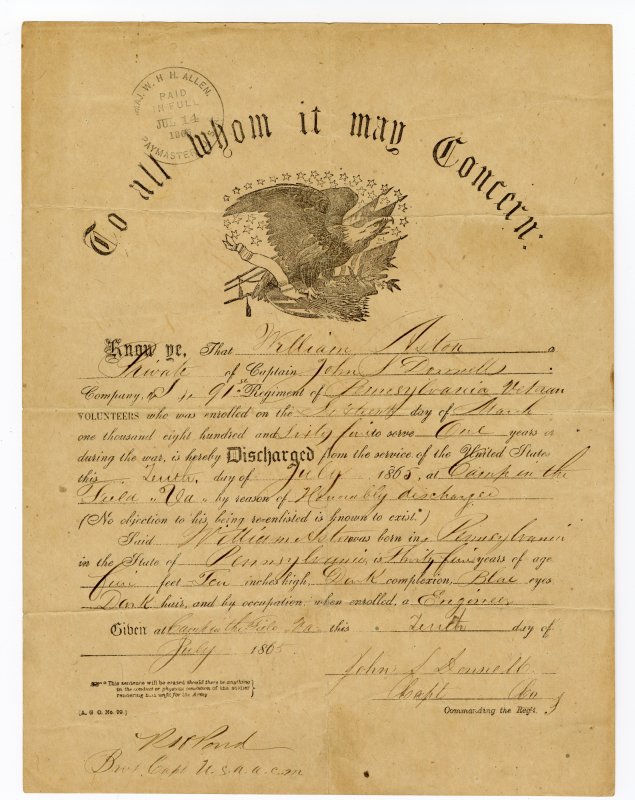 MAJ. W. H. H. ALLEN.
PAID
IN FULL
JUL 14
PAYMASTER
To all whom it may Concern:
Know ye, That William Aston a
Private of Captain John S Donnell
Company, 91st Regiment of Pennsylvania Veteran
VOLUNTEERS who was enrolled on the day of March
one thousand eight hundred and Sixty five to serve One years or
during the war, is hereby Discharged from the service of the United States
this Tenth, day of July 1865, at Camp in the
Field Va by reason of Honorably discharged
(No objection to his being re-enlisted is known to exist.*)
Said William Aston was born in Pennsylvania
in the State of Pennsylvania, is Thirty five years of age
Five feet Ten inches high, Dark complexion, Blue eyes
Dark hair, and by occupation, when enrolled, a Engineer
Given at Camp in the Field Va this Tenth day of
July 1865
John S Donnell
Capt Co
Commanding the Reg't.
* This sentence will be erased should there be anything
in the conduct or physical condition of the soldier
rendering him unfit for the Army
(A. G. O. No. 99.)
R H Pond
Bvt. Capt U.S.A. a.c.m